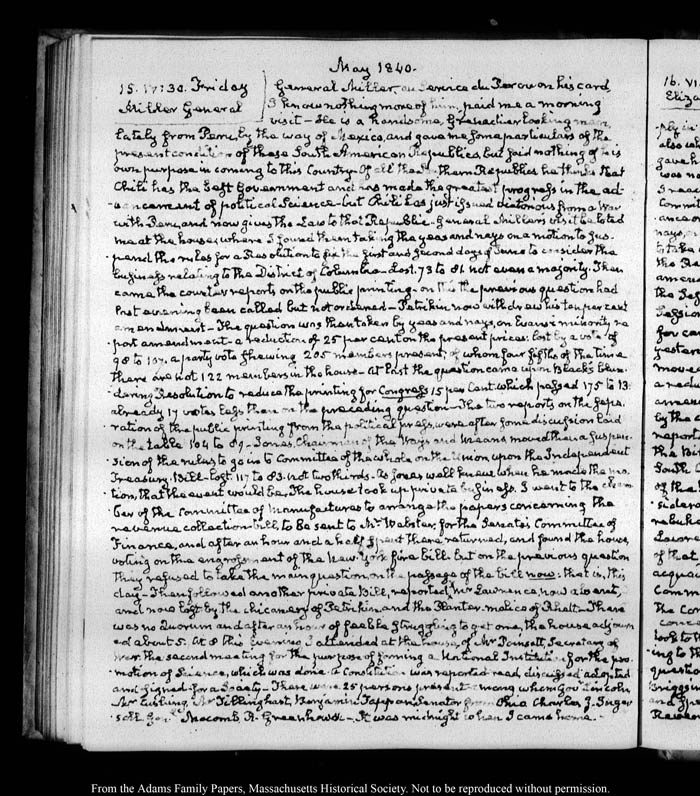 May 1840.
15. IV:30. Friday
Miller General
General Miller, au Service du Perou on his card,
I know nothing more of him, paid me a morning
visit – He is a handsome, Grenadier looking man,
lately from Peru, by the way of Mexico, and gave me some particulars of the
present condition of these South American Republics, but said nothing of his
own purpose in coming to this Country. Of all them Republics he thinks that
Chili has the best Government and has made the greatest progress in the ad-
vancement of political Science – but Chili has just issued victorious from a War
with Peru, and now gives the Law to that Republic – General Miller's visit belated
me at the house, where I found them taking the yeas and nays on a motion to sus-
pend the rules for a Resolution to fix the first and second days of June to consider the
business relating to the District of Columbia – lost. 73 to 81 not even a majority. Then
came the counter reports on the public printing – on this the previous question had
last evening been called but not ordered – Petrikin now withdrew his ten per cent
amendment – The question was then taken by yeas and nays, on Evans's minority re-
port amendment – a reduction of 25 per cent on the present prices: lost by a vote of
98 to 107. a party vote shewing 205 members present, of whom four fifths of the time
there are not 122 members in the house – At last the question came upon Black's blun-
dering Resolution to reduce the printing for Congress 15 per Cent. which passed 175 to 13.
already 17 votes less than on the preceding question – The two reports on the sepa-
ration of the public printing from the political press, were after some discussion laid
on the table 104 to 89 – Jones, Chairman of the Ways and Means moved then a suspen-
sion of the rules to go into Committee of the whole on the Union upon the Independent
Treasury Bill – lost. 117 to 83. not two thirds. As Jones well knew, when he made the mo-
tion, that the event would be. The house took up private business. I went to the cham-
ber of the Committee of Manufactures to arrange the papers concerning the
revenue collection bill, to be sent to Mr. Webster, for the Senate's Committee of
Finance, and after an hour and a half spent there returned, and found the house,
voting on the engrossment of the New-York fire bill. but on the previous question
they refused to take the main question, on the passage of the bill now: that is, this
day – Then followed another private Bill, reported Mr Lawrence, now absent,
and now lost by the chicanery of Petrikin, and the Planter-malice of Rhett – There
was no Quorum and after an hour of feeble struggling to get one, the house adjourn
ed about 5. At 8 this Evening I attended at the house of Mr Poinsett, Secretary of
War. the second meeting for the purpose of forming a National Institution for the pro-
motion of Science, which was done. A Constitution was reported read, discussed adopted
and signed for a Society – There were 25 persons present – among whom Govr Lincoln
Mr Cushing, Mr Tillinghast, Benjamin Tappan Senator from Ohio Charles J. Inger
soll Genl. Macomb, R. Greenhow &c – It was midnight when I came home.
16. VI
Eliza
From the Adams Family Papers, Massachusetts Historical Society. Not to be reproduced without permission.